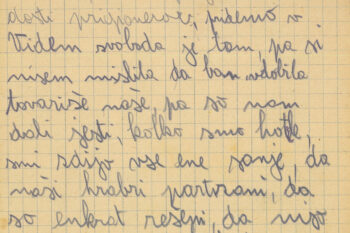 dosti prijonerov, pridemo v
Videm svoboda je tam, pa si
nisem mislila da ban vdobila
tovariše naše, pa so nam
dali jesti, kolko smo hotle,
smi zdijo vse ene sanje, da
naši hrabri partizani, da
so enkrat rešeni, da niso